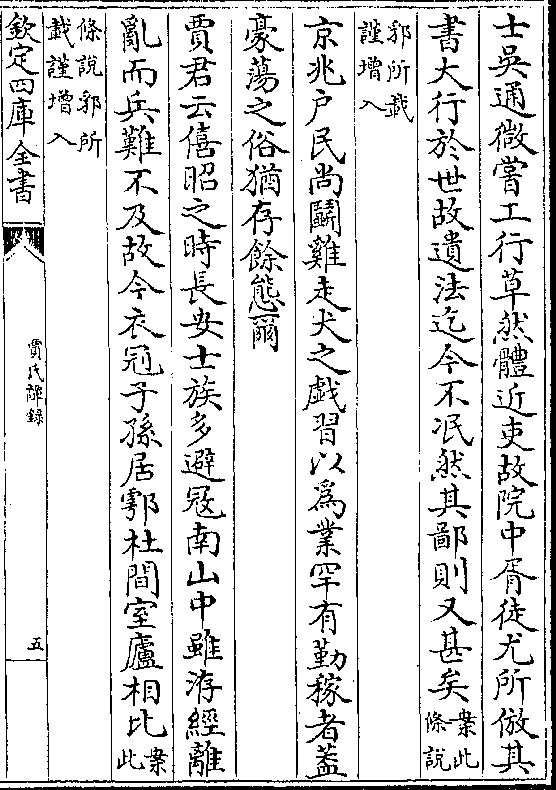 士吳通微嘗工行草然體近吏故院中胥徒尤所倣其
書大行於世故遺法迄今不泯然其鄙則又甚矣案此
條說
郛所載
謹增入
京兆户民尚鬭雞走犬之戲習以為業罕有勤稼者蓋
豪蕩之俗猶存餘態爾
賈君云僖昭之時長安士族多避冦南山中雖洊經離
亂而兵難不及故今衣冠子孫居鄠杜間室廬相比案
此
條說郛所
載謹增入
欽定四庫全書
賈氏譚錄
五